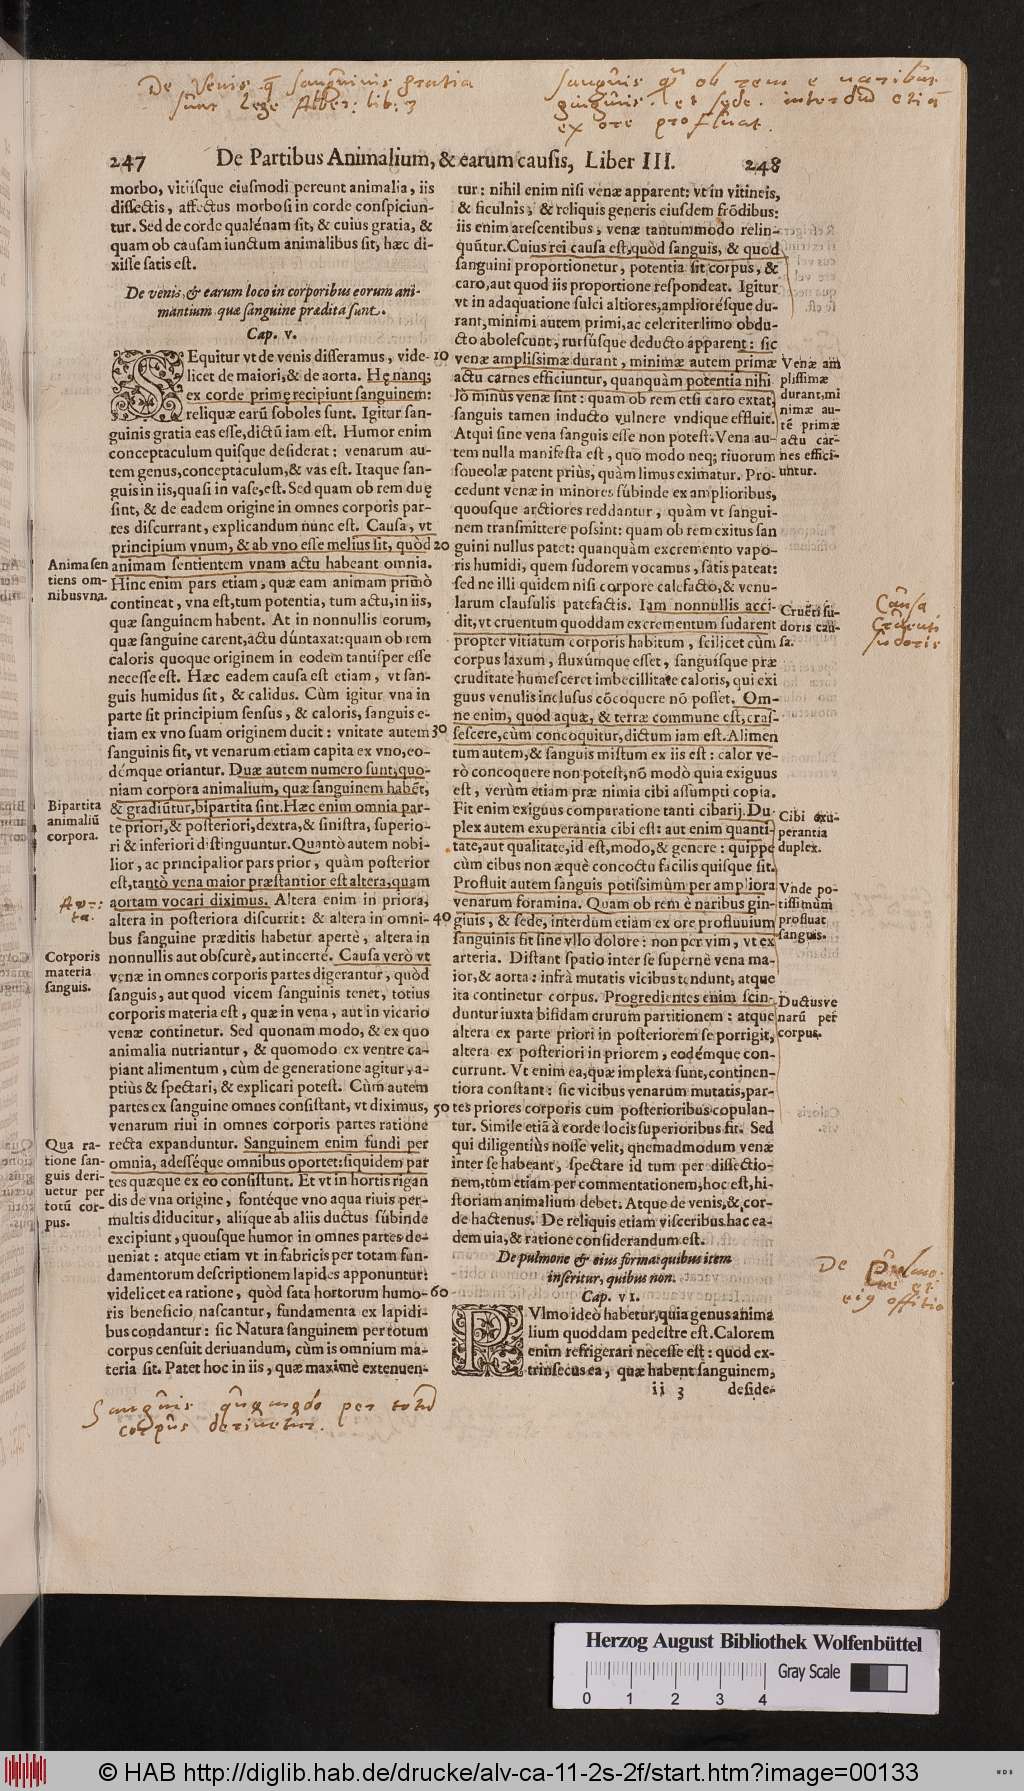 De Venis q̃ sangvinis gratia
sunt Lege Alber: lib: 3
Sanguis qr ob rem e naribus
gingiuis. et sede. interdũ etiã
ex ore profluat.
247
De Partibus Animalium, & earum causis, Liber III.
248
morbo, vitiísque eiusmodi pereunt animalia, iis
dissectis, affectus morbosi in corde conspiciun-
tur. Sed de corde qualénam sit, & cuius gratia, &
quam ob causam iunctum animalibus sit, hæc di-
xisse satis est.
De venis, & earum loco in corporibus eorum ani-
mantium quæ sanguine prædita sunt.
Cap. V.
SEquitur vt de venis disseramus, vide-
licet de maiori, & de aorta. Hę nanq;
ex corde primę recipiunt sanguinem:
reliquæ earũ soboles sunt. Igitur san-
guinis gratia eas esse, dictũ iam est. Humor enim
conceptaculum quisque desiderat: venarum au-
tem genus, conceptaculum, & vas est. Itaque san-
guis in iis, quasi in vase, est. Sed quam ob rem duę
sint, & de eadem origine in omnes corporis par-
tes discurrant, explicandum nunc est. Causa, vt
principium vnum, & ab vno esse melius sit, quòd
animam sentientem vnam actu habeant omnia.
Hinc enim pars etiam, quæ eam animam primò
contineat, vna est, tum potentia, tum actu, in iis,
quæ sanguinem habent. At in nonnullis eorum,
quæ sanguine carent, actu dũntaxat: quam ob rem
caloris quoque originem in eodem tantisper esse
necesse est. Hæc eadem causa est etiam, vt san-
guis humidus sit, & calidus. Cùm igitur vna in
parte sit principium sensus, & caloris, sanguis e-
tiam ex vno suam originem ducit: vnitate autem
sanguinis sit, vt venarum etiam capita ex vno, eo-
démque oriantur. Duæ autem numero sunt, quo-
niam corpora animalium, quæ sanguinem habẽt,
& gradiũtur, bipartita sint. Hæc enim omnia par-
te priori, & posteriori, dextra, & sinistra, superio-
ri & inferiori distinguuntur. Quantò autem nobi-
lior, ac principalior pars prior, quàm posterior
est, tantò vena maior præstantior est altera, quam
aortam vocari diximus. Altera enim in priora,
altera in posteriora discurrit: & altera in omni-
bus sanguine præditis habetur apertè, altera in
nonnullis aut obscurè, aut incertè. Causa verò vt
venæ in omnes corporis partes digerantur, quòd
sanguis, aut quod vicem sanguinis tenet, totius
corporis materia est, quæ in vena, aut in vicario
venæ continetur. Sed quonam modo, & ex quo
animalia nutriantur, & quomodo ex ventre ca-
piant alimentum, cùm de generatione agitur, a-
ptiùs & spectari, & explicari potest. Cùm autem
partes ex sanguine omnes consistant, vt diximus,
venarum riui in omnes corporis partes ratione
recta expanduntur. Sanguinem enim fundi per
omnia, adesséque omnibus oportet: siquidem par
tes quæque ex eo consistunt. Et vt in hortis rigan
dis de vna origine, fontéque vno aqua riuis per-
multis diducitur, aliísque ab aliis ductus súbinde
excipiunt, quousque humor in omnes partes de-
ueniat: atque etiam vt in fabricis per totam fun-
damentorum descriptionem lapides apponuntur:
videlicet ea ratione, quòd sata hortorum humo-
ris beneficio nascantur, fundamenta ex lapidi-
bus condantur: sic Natura sanguinem per totum
corpus censuit deriuandum, cùm is omnium ma-
teria sit. Patet hoc in iis, quæ maximè extenuen-
Anima sen
tiens om-
nibus vna.
Bipartita
animaliũ
corpora.
Corporis
materia
sanguis.
Qua ra-
tione san-
guis deri-
uetur per
totũ cor-
pus.
10
20
30
40
50
60
tur: nihil enim nisi venæ apparent: vt in vitineis,
& ficulnis, & reliquis generis eiusdem frõdibus:
iis enim arescentibus, venæ tantummodo relin-
quũtur. Cuius rei causa est, quòd sanguis, & quod
sanguini proportionetur, potentia sit corpus, &
caro, aut quod iis proportione respondeat. Igitur
vt in adaquatione sulci altiores, amplioresque du-
rant, minimi autem primi, ac celerrimo obdu-
cto abolescunt, rursúsque deducto apparent: sic
venæ amplissimæ durant, minimæ autem primæ
actu carnes efficiuntur, quanquàm potentia nihi
lò minùs venæ sint: quam ob rem etsi caro extat,
sanguis tamen inducto vulnere vndique effluit.
Atqui sine vena sanguis esse non potest. Vena au-
tem nulla manifesta est, quo modo neq; riuorum
foueolæ patent priùs, quàm limus eximatur. Pro-
cedunt venæ in minores súbinde ex amplioribus,
quousque arctiores reddantur, quàm vt sangui-
nem transmittere possint: quam ob rem exitus san
guini nullus patet: quanquàm excremento vapo-
ris humidi, quem sudorem vocamus, satis pateat:
sed ne illi quidem nisi corpore calefacto, & venu-
larum clausulis patefactis. Iam nonnullis acci-
dit, vt cruentum quoddam excrementum sudarent
propter vitiatum corporis habitum, scilicet cùm
corpus laxum, fluxúmque esset, sanguísque præ
cruditate humesceret imbecillitate caloris, qui exi
guus venulis inclusus cõcoquere nõ posset. Om-
ne enim, quod aquæ, & terræ commune est, cras-
sescere, cùm concoquitur, dictum iam est. Alimen
tum autem, & sanguis mistum ex iis est: calor ve-
rò concoquere non potest, nõ modò quia exiguus
est, verùm etiam præ nimia cibi assumpti copia.
Fit enim exiguus comparatione tanti cibarij. Du-
plex autem exuperantia cibi est: aut enim quanti-
tate, aut qualitate, id est, modo, & genere: quippe
cùm cibus non æquè concoctu facilis quisque sit.
Profluit autem sanguis potissimùm per ampliora
venarum foramina. Quam ob rem è naribus gin-
giuis, & sede, interdùm etiam ex ore profluuium
sanguinis fit sine vllo dolore: non per vim, vt ex
arteria. Distant spatio inter se supernè vena ma-
ior, & aorta: infrà mutatis vicibus tendunt, atque
ita continetur corpus. Progredientes enim scin-
duntur iuxta bifidam crurum partitionem: atque
altera ex parte priori in posteriorem se porrigit,
altera ex posteriori in priorem, eodémque con-
currunt. Vt enim ea, quæ implexa sunt, continen-
tiora constant: sic vicibus venarum mutatis, par-
tes priores corporis cum posterioribus copulan-
tur. Simile etiã à corde locis superioribus fit. Sed
qui diligentiùs nosse velit, quemadmodum venæ
inter se habeant, spectare id tum per dissectio-
nem, tùm etiam per commentationem, hoc est, hi-
storiam animalium debet. Atque de venis, & cor-
de hactenus. De reliquis etiam visceribus hac ea-
dem uia, & ratione considerandum est.
De pulmone & eius forma: quibus item
inseritur, quibus non.
Cap. VI.
PVlmo ideò habetur, quia genus anima
lium quoddam pedestre est. Calorem
enim refrigerari necesse est: quod ex-
trinsecus ea, quæ habent sanguinem,
ii 3
deside-
Venæ am
plissimæ
durant, mi
nimæ au-
tẽ primæ
actu car-
nes effici-
untur.
Cruẽti su-
doris cau-
sa.
Causa
Cruenti
sudoris
Cibi exu-
perantia
duplex.
Vnde po-
tissimùm
profluat
sanguis.
Ductus ve
narũ per
corpus.
De Pulmo-
ne et
eig offitio
Sanguis quemodo per totũ
corpus deriuetur.
Herzog August Bibliothek Wolfenbüttel
Gray Scale
0 1 2 3 4
© HAB http://diglib.hab.de/drucke/alv-ca-11-2s-2f/start.htm?image=00133